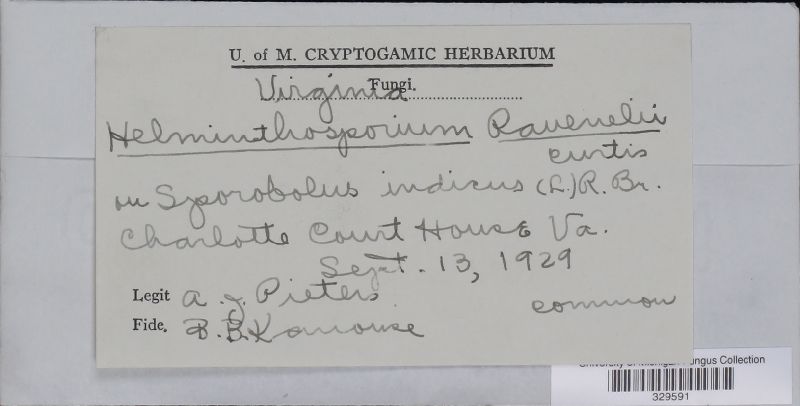 U. of M. CRYPTOGAMIC HERBARIUM
Fungi.
Virginia
Helminthosporium Ravenelii
curtis
on Sporobolus indicus (L.) R. Br.
Charlotte Court House Va.
Sept. 13, 1929
Legit A. J. Pieters.
common
Fide. B. B. Kanouse
University of Michigan Fungus Collection
329591